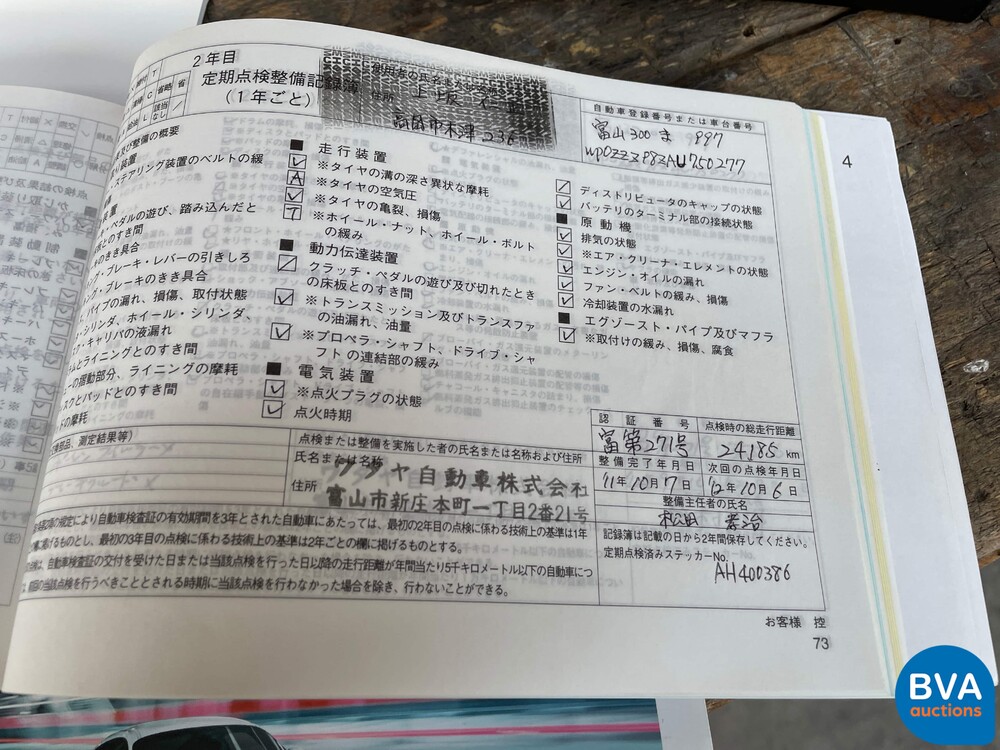 2年目
定期点検整備記録簿
(1年ごと)
住所
高岡市木津 236
自動車登録番号または車台番号
富山300 ま 997
WP0ZZZP8ZAU750277
4
及び整備の概要
ステアリング装置のベルトの緩
・ペダルの遊び、踏み込んだと
とのすき間
のきき具合
グ・ブレーキ・レバーの引きしろ
ング・ブレーキのきき具合
パイプの漏れ、損傷、取付状態
シリンダ、ホイール・シリンダ、
ク・キャリパの液漏れ
ムとライニングとのすき間
ーの摺動部分、ライニングの摩耗
スクとパッドとのすき間
ドの摩耗
■ 走行装置
※タイヤの溝の深さ異状な摩耗
A ※タイヤの空気圧
※タイヤの亀裂、損傷
T ※ホイール・ナット、ホイール・ボルト
の緩み
■ 動力伝達装置
クラッチ・ペダルの遊び及び切れたとき
の床板とのすき間
※トランスミッション及びトランスファ
の油漏れ、油量
※プロペラ・シャフト、ドライブ・シャ
フトの連結部の緩み
■ 電気装置
※点火プラグの状態
点火時期
ディストリビュータのキャップの状態
バッテリのターミナル部の接続状態
■ 原動機
排気の状態
※エア・クリーナ・エレメントの状態
エンジン・オイルの漏れ
ファン・ベルトの緩み、損傷
冷却装置の水漏れ
■ エグゾースト・パイプ及びマフラ
※取付けの緩み、損傷、腐食
交換部品、測定結果等)
点検または整備を実施した者の氏名または名称および住所
氏名または名称
住所
ワタヤ自動車株式会社
富山市新庄本町一丁目2番21号
認証番号
富第271号
点検時の総走行距離
24,185 km
整備完了年月日
'11年10月7日
次回の点検年月日
'12年10月6日
整備主任者の氏名
松田 孝治
記録簿は記載の日から2年間保存してください。
定期点検済みステッカーNo.
AH400386
の規定により自動車検査証の有効期間を3年とされた自動車にあたっては、最初の2年目の点検に係わる技術上の基準は1年
に掲げるものとし、最初の3年目の点検に係わる技術上の基準は2年ごとの欄に掲げるものとする。
は、自動車検査証の交付を受けた日または当該点検を行った日以降の走行距離が年間当たり5千キロメートル以下の自動車につ
の当該点検を行うべきこととされる時期に当該点検を行わなかった場合を除き、行わないことができる。
お客様 控
73
BVA
auctions